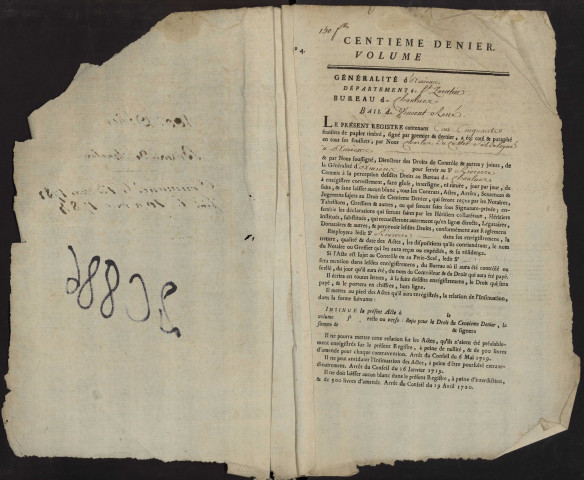 2C886
150 f.lles
N° 4.
CENTIEME DENIER.
VOLUME
GÉNÉRALITÉ d'Amiens
DÉPARTEMENT de
BUREAU de Chaulnes
BAIL de Vincent René
LE PRÉSENT REGISTRE contenant Cent Cinquante
feuillets de papier timbré, signé par premier & dernier, a été coté & paraphé
en tous ses feuillets, par Nous
à Amiens
& par Nous soussigné, Directeur des Droits de Contrôle & autres y joints, de
la Généralité d'Amiens pour servir au Sr
Commis à la perception desdits Droits au Bureau de Chaulnes
à enregistrer correctement, sans glose, interligne, ni rature, jour par jour, de
suite, & sans laisser aucun blanc, tous les Actes, Arrêts, Sentences &
Jugemens sujets au Droit de Centieme Denier, qui seront reçus par les Notaires,
Tabellions, Greffiers & autres, ou qui seront faits sous Signature-privée; en-
semble les déclarations qui seront faites par les Héritiers collatéraux, Héritiers
Institués, substitués, qui recueilleront autrement qu'en ligne directe, Légataires,
Donataires & autres, & percevoir lesdits Droits, conformément aux Réglemens
Employera ledit Sr dans ses enregistrement, la
nature, qualité & date des Actes, les dispositions qu'ils contiendront, le nom
du Notaire ou Greffier qui les aura reçus ou expédiés, & sa résidence.
Si l'Acte est sujet au Contrôle ou au Petit-Scel, ledit Sr
sera mention dans lesdits enregistrement, du Bureau où il aura été contrôlé ou
scellé, du jour qu'il aura été, du nom du Contrôleur & du Droit qui aura été payé.
Il écrira en toutes lettres, à la suite desdits enregistrement, le Droit qui sera
payé, & le portera en chiffres, hors ligne.
Il mettra au pied des Actes qu'il aura enregistrés, la relation de l'Insinuation,
dans la forme suivante:
INSINUÉ le présent Acte à le
volume f° recto ou verso: Reçu pour le Droit de Centieme Denier, la
somme de & signera
Il ne pourra mettre cette relation sur les Actes, qu'ils n'aient été préalable-
ment enregistrés sur le présent Registre, à peine de nullité, & de 300 livres
d'amende pour chaque contravention. Arrêt du Conseil du 6 Mai 1719.
Il ne peut antidater l'Insinuation des Actes, à peine d'être poursuivi extraor-
dinairement. Arrêt du Conseil du 16 Janvier 1719.
Il ne doit laisser aucun blanc dans le présent Registre, à peine d'interdiction,
& de 500 livres d'amende. Arrêt du Conseil du 19 Avril 1720.